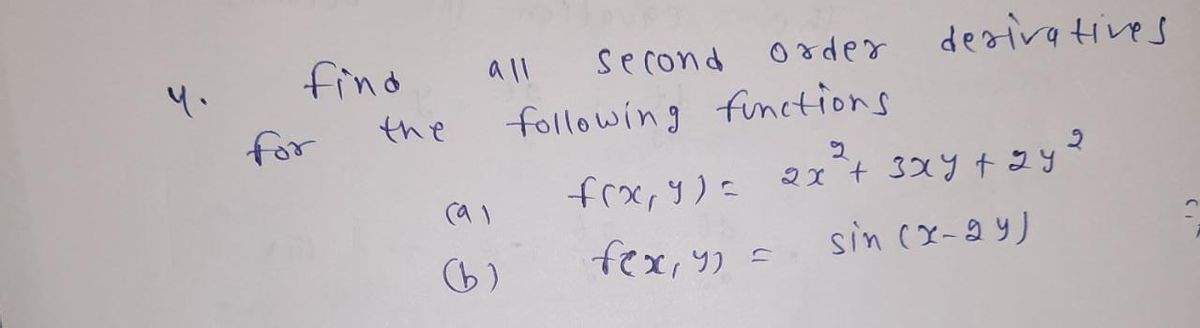 4. find all second order derivatives
for the following functions
(a) f(x, y) = 2x² + 3xy + 2y²
(b) f(x, y) = sin (x-2y)